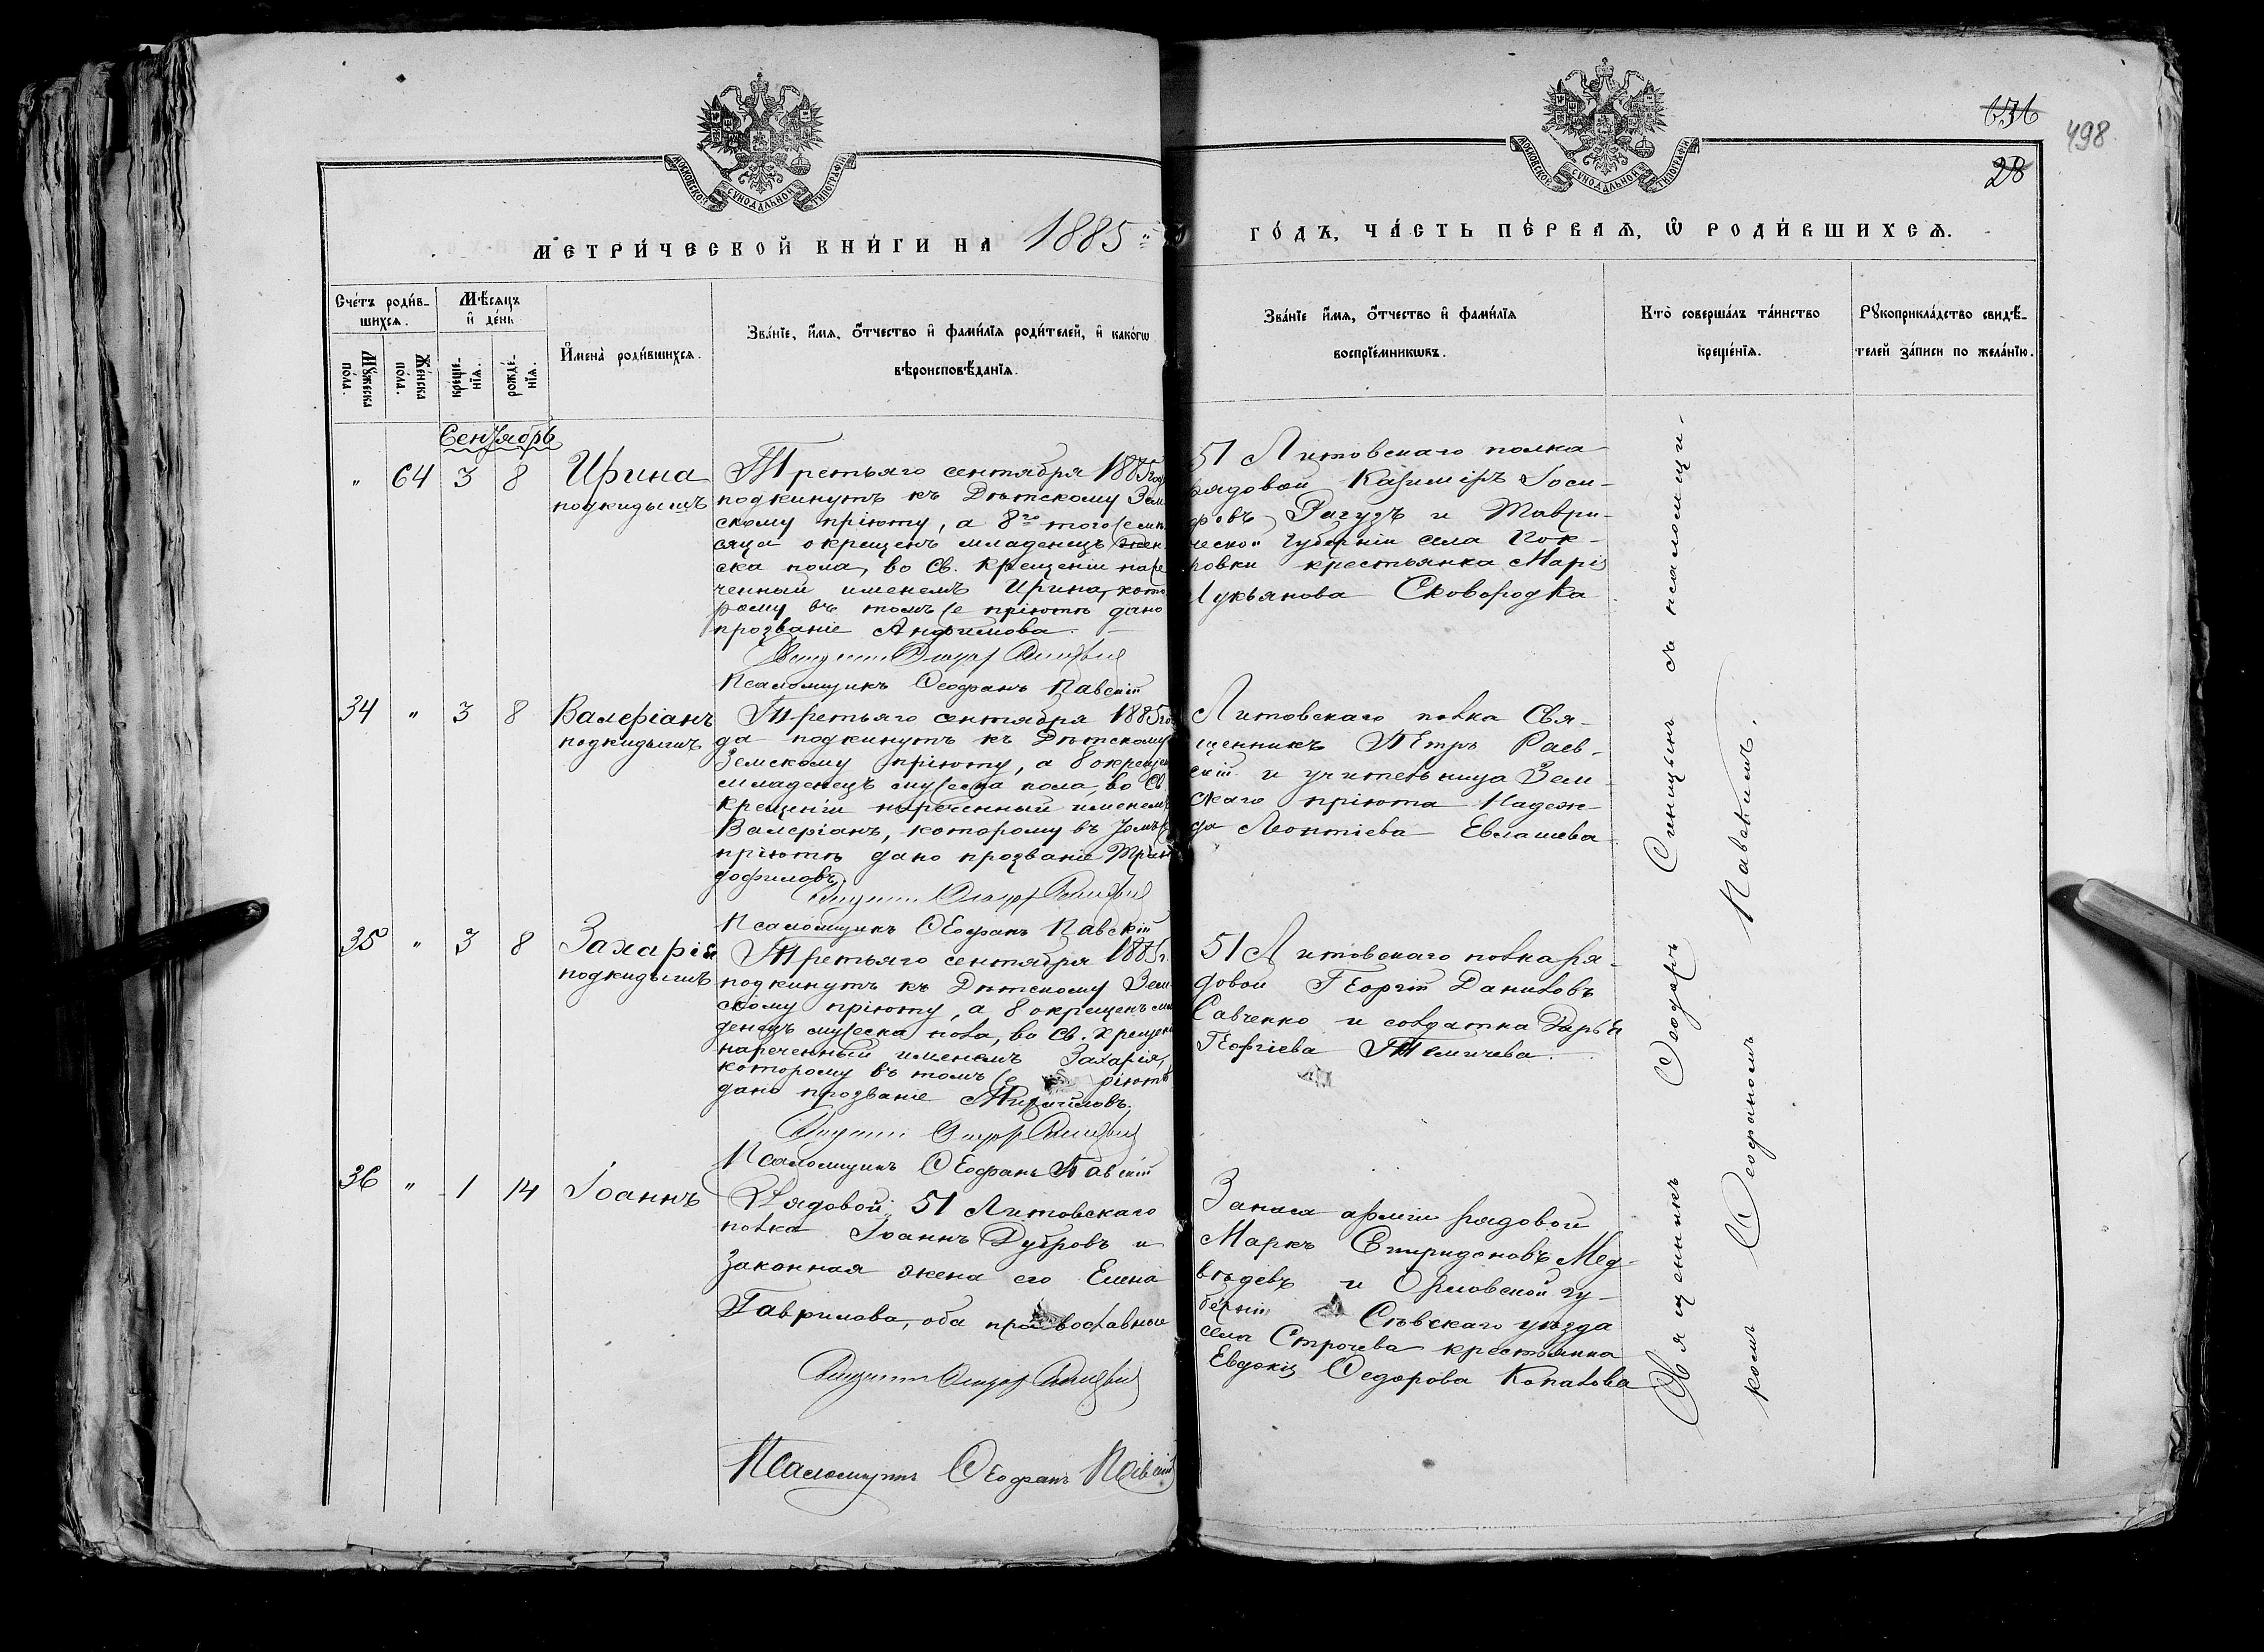 636
498
28
МОСКОВСКОЙ СѴНОДАЛЬНОЙ ТИПОГРАФІИ
МОСКОВСКОЙ СѴНОДАЛЬНОЙ ТИПОГРАФІИ
МЕТРИ́ЧЕСКОЙ КНИ́ГИ НА 1885
ГО́ДЪ, ЧА́СТЬ ПЕ́РВАѦ, Ѡ РОДИ́ВШИХСѦ.
Сче́тъ роди́в-
шихсѧ.
Мѣ́сѧцъ
и де́нь
Мꙋ́жеска
по́ла.
Же́нска
по́ла.
креще-
нїѧ.
рожде́-
нїѧ.
Имена̀ роди́вшихсѧ.
Зва́нїе, и́мѧ, ѻ҆́тчество и фами́лїѧ роди́телей, и како́гѡ
вѣроисповѣ́данїѧ.
Зва́нїе и́мѧ, ѻ҆́тчество и фами́лїѧ
воспрїе́мникѡвъ.
Кто̀ соверша́лъ та́инство
креще́нїѧ.
Рꙋкоприкла́дство свидѣ́-
телей за́писи по жела́нїю.
Сентябрь
" 64 3 8 Ирина
подкидышъ
Третьяго сентября 1885 год
подкинутъ къ Дѣтскому Зем
скому пріюту, а 8го того же мѣ
сяца окрещенъ младенецъ жен
ска пола, во Св. Крещеніи наре
ченный именемъ Ирина, кото
рому въ томъ же пріютѣ дано
прозваніе Анфимова.
Псаломщикъ Ѳеофанъ Павскій
51 Литовскаго полка
рядовой Казиміръ Іоси-
фовъ Рагудъ и Таври-
ческой губерніи села Пок-
ровки крестьянка Марія
Лукьянова Сковородка
34 " 3 8 Валеріанъ
подкидышъ
Третьяго сентября 1885 го
да подкинутъ къ Дѣтскому
Земскому пріюту, а 8 окрещен
младенецъ мужеска пола, во Св.
Крещеніи нареченный именемъ
Валеріанъ, которому въ томъ же
пріютѣ дано прозваніе Трин
дофиловъ.
Псаломщикъ Ѳеофанъ Павскій
Литовскаго полка Свя-
щенникъ Петръ Раев-
скій и учительница Зем-
скаго пріюта Надеж-
да Леонтіева Евлашева
35 " 3 8 Захарія
подкидышъ
Третьяго сентября 1885 г.
подкинутъ къ Дѣтскому Зем-
скому пріюту, а 8 окрещенъ мла
денецъ мужеска пола, во Св. Крещені
нареченный именемъ Захарія,
которому въ томъ же пріютѣ
дано прозваніе Михайловъ.
Псаломщикъ Ѳеофанъ Павскій
51 Литовскаго полка ря-
довой Георгій Даниловъ
Савченко и солдатка Дарья
Георгіева Темичева.
36 " 1 14 Іоаннъ
Рядовой 51 Литовскаго
полка Іоаннъ Дубровъ и
законная жена его Елена
Гаврилова, оба православные
Псаломщикъ Ѳеофанъ Павскій
Запаса арміи рядовой
Маркъ Спиридоновъ Мед-
вѣдевъ и Орловской гу-
берніи Сѣвскаго уѣзда
села Строчева крестьянка
Евдокія Ѳедорова Копалова
Священникъ Ѳеодоръ Синицынъ съ псаломщи-
комъ Ѳеофаномъ Павскимъ.